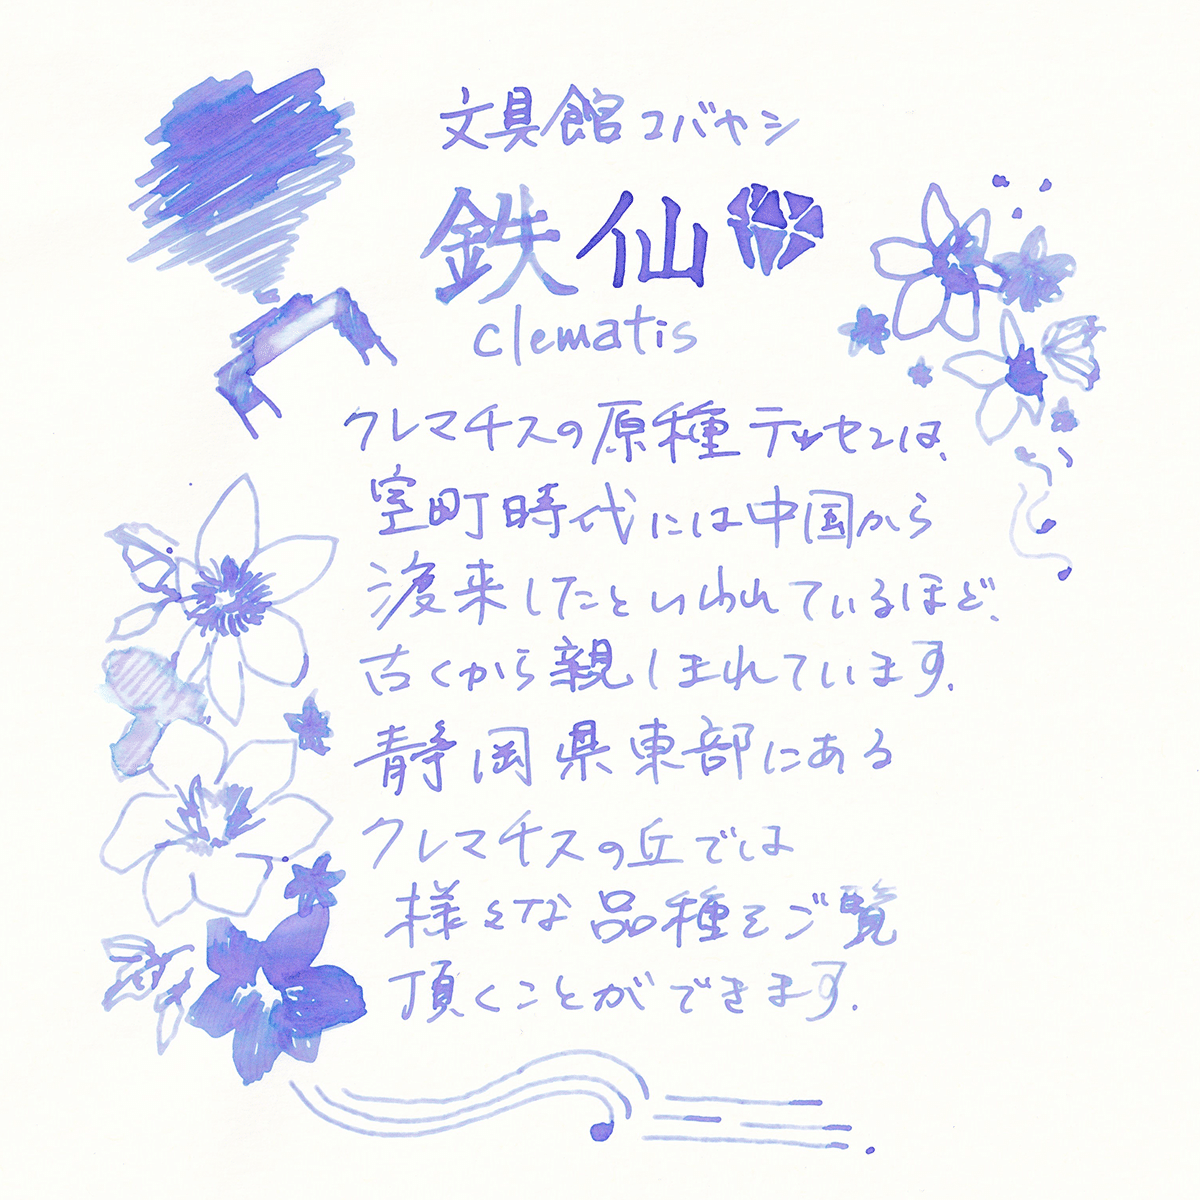 文具館コバヤシ
鉄仙
clematis
クレマチスの原種テッセンは、
室町時代には中国から
渡来したといわれているほど、
古くから親しまれています。
静岡県東部にある
クレマチスの丘では
様々な品種をご覧
頂くことができます。